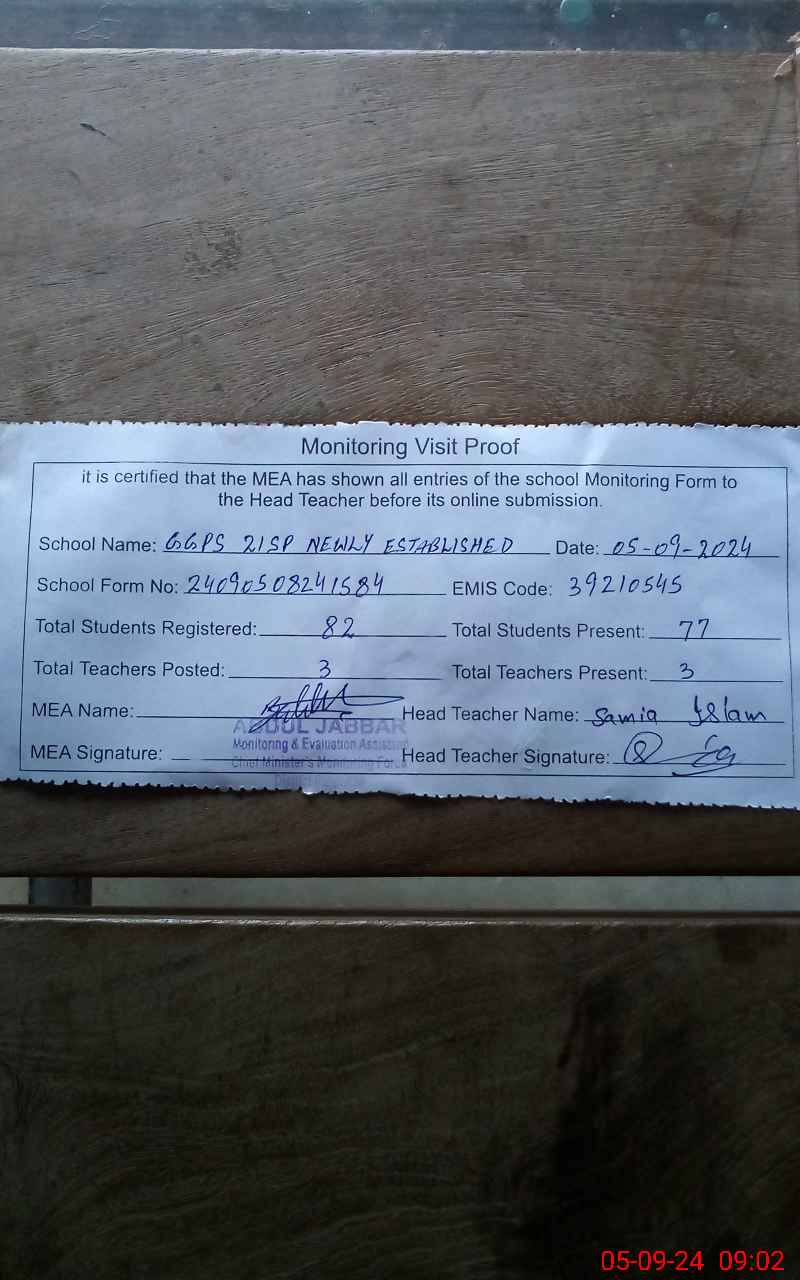 Monitoring Visit Proof
it is certified that the MEA has shown all entries of the school Monitoring Form to
the Head Teacher before its online submission.
School Name: GGPS 21SP NEWLY ESTABLISHED Date: 05-09-2024
School Form No: 24090508241584 EMIS Code: 39210545
Total Students Registered: 82 Total Students Present: 77
Total Teachers Posted: 3 Total Teachers Present: 3
MEA Name: Head Teacher Name: Samia Islam
ABDUL JABBAR
Monitoring & Evaluation Assistant
MEA Signature: Head Teacher Signature:
Chief Minister's Monitoring Force
05-09-24 09:02